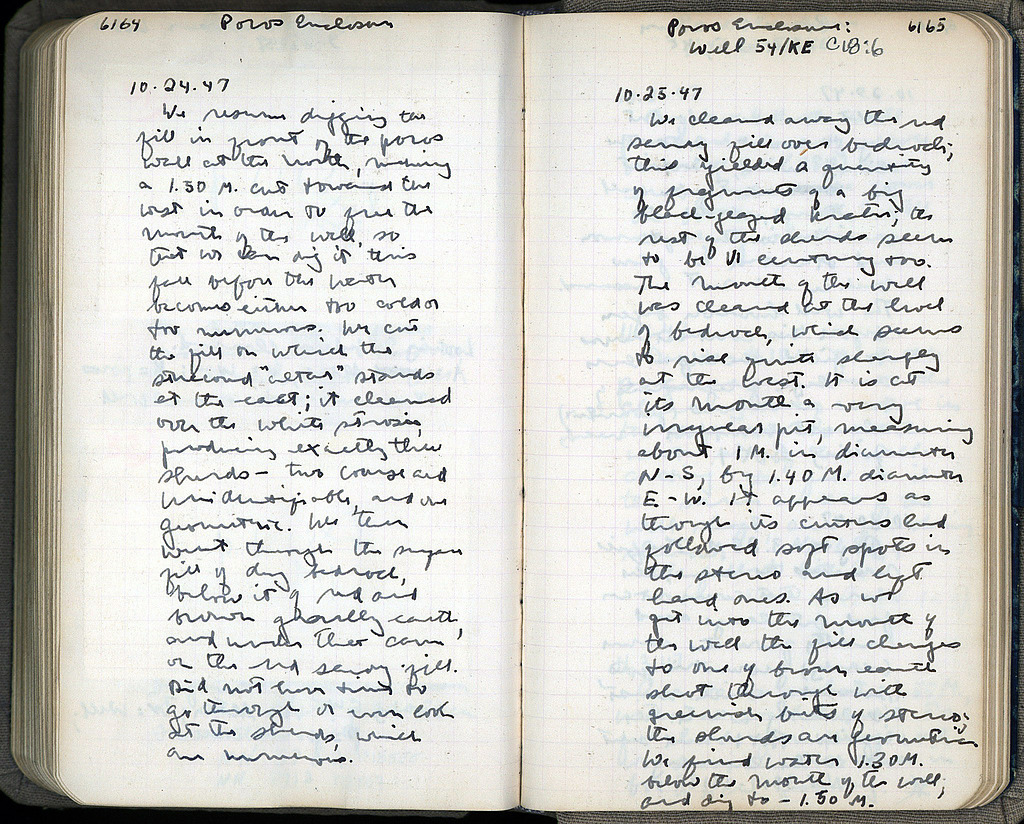 6164 Poros Enclosure
10.24.47
We resume digging the
fill in front of the poros
wall at the north, running
a 1.50 M. cut toward the
west in order to free the
mouth of the well, so
that we can dig it this
fall before the water
becomes either too cold or
too numerous. We cut
the fill on which the
"altar" stands
at the east; it cleaned
over the white strosis,
producing exactly three
sherds – two coarse and
unidentifiable, and one
geometric. We then
went through the upper
fill of dug bedrock,
below it of red and
brown gravelly earth,
and under that came
on the red sandy fill.
Did not have time to
go through or even look
at the sherds, which
are numerous.
Poros Enclosure: 6165
Well 54/KE C18:6
10.25.47
We cleaned away the red
sandy fill over bedrock;
this yielded a quantity
of fragments of a big
black-glazed krater; the
rest of the sherds seem
to be VI century too.
The mouth of the well
was cleaned at the level
of bedrock, which seems
to rise quite sharply
at the west. It is at
its mouth a very
irregular pit, measuring
about 1 M. in diameter
N-S, by 1.40 M. diameter
E-W. It appears as
though its cutters had
followed soft spots in
the stereo and left
hard ones. As we
get into the mouth of
the well the fill changes
to one of brown earth
shot through with
greenish bits of stereo;
the sherds are geometric.
We find water 1.30 M.
below the mouth of the well,
and dig to – 1.50 M.